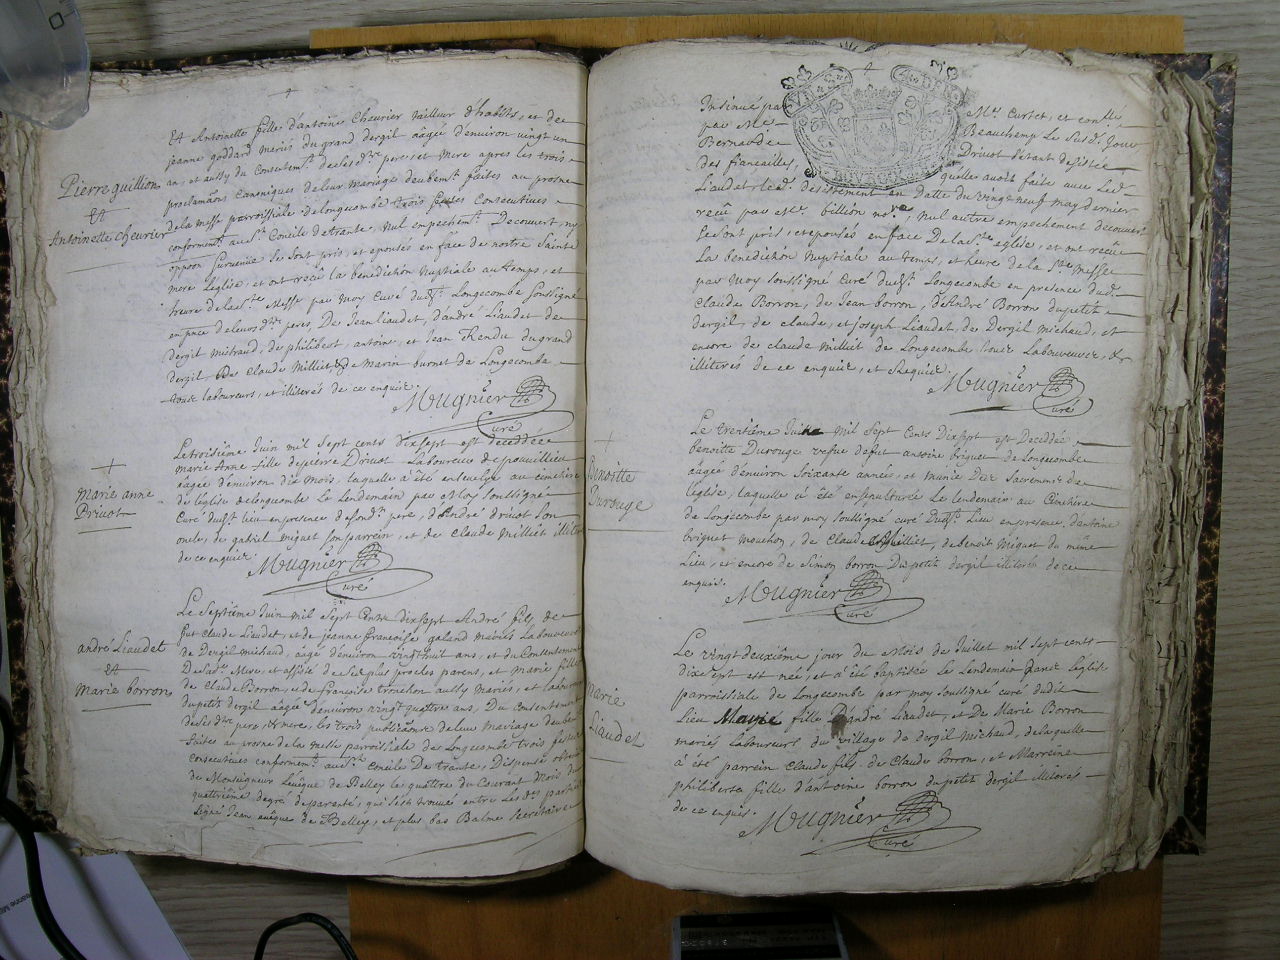 Pierre guillion
Et
Antoinette chevrier
Et Antoinette fille d'antoine Chevrier tailleur d'habits, et de
jeanne goddard mariés du grand dergil aâgee d'environ vingt un
an, et aussy du Consentem.t desses d.ts pere, et mere apres les trois
proclamãons Canoniques de leur mariage deubem.t faites au prosne
de la messe parroissiale de longecombe trois festes Consecutives
conformem.t au S.t Concile de trante, Nul empechem.t Decouvert, ny
oppoon Survenüe Se Sont pris, et epousés en face de nostre Sainte
mere Leglise, et ont receü la benediction Nuptiale au temps, et
heure de la S.te Messe par moy Curé dud.t Longecombe Soussigné
en pnce de leurs d.ts peres, De Jean liaudet, d'andré Liaudet de
dergit michaud, de philibert, antoine, et Jean Rendu du grand
dergil, De Claude Milliet, de Marin burnet de Longecombe
tous laboureurs, et illiterés de ce enquis.
Mugnier
Curé
Marie anne
Drivot
Le troisiéme Juin mil Sept cents dixsept est decedée
marie Anne fille de pierre Drivot Laboureur de pouvillieu
aagée d'environ dix mois, laquelle a été ensevelye au cimetiere
de l'église de longecombe Le Lendemain par Moy soussigné
Curé dud.t lieu en presence de son d.t pere, d'André drivot Son
oncle, de gabriel miguet son parrein, et de Claude Milliet illiter
de ce enquis.
Mugnier
Curé
andré Liaudet
et
Marie borron
Le Septiéme Juin mil Sept Cents dixsept André fils de
fut Claude Liaudet, et de jeanne françoise galand mariés Laboureurs
de Dergil michaud, aagé d'environ vingt huit ans, et du Consentement
De Sad.te Mere, et assisté de Ses plus proches parens, et marie fille
de Claude Borron, et de françoise trouchon aussy mariés, et laboureurs
du petit dergil aagée d'environ vingt quattre ans, Du Consentement
de Ses d.ts pere, et mere, les trois publicaons de leur Mariage deubem.t
faites au prosne de la messe parroissiale de Longecombe trois festes
consecutives conformem.t au S.t Concile De trante, Dispense obtenüe
de Monseigneur L'evêque de Belley le quattre du Courant Mois du
quattriéme degré de parenté, qui s'est trouvé entre Les d.tes parties
Signé Jean evêque de Belley, et plus bas Balme Secretaire
Insinué par M.re Curtet, et con.lle
par M.es Beauchemp Le Susd. jour
Bernard de Drivot s'étant desistée
des fiancailles, quelle avoit faite avec Led.
Liaudet, led. desistement en Datte du vingt neuf may dernier
receü par M.re billion no.re, Nul autre empechement decouvert
Se Sont pris, et epousés en face De la S.te eglise, et ont receü
La benediction Nuptiale au temps, et heure de la S.te Messe
par moy soussigné Curé dud.t Longecombe en presence dud.
claude Borron, de Jean borron, d'andré Borron du petit
dergil, de claude, et joseph Liaudet, de Dergil Michaud, et
encore de claude milliet de Longecombe, tous Laboureurs, &
illiteres de ce enquis, et Requis.
Mugnier
Curé
Benoitte
Durouge
Le trentiéme Juin mil Sept Cents Dixsept est Decedée
benoitte Durouge vefve de fut antoine briguet de Longecombe
aagée d'environ Soixante années, et munie Des Sacremens de
l'église, laquelle a été ensepulturée Le lendemain au Cimetiere
de Longecombe par moy soussigné curé Dud.t Lieu en presence, d'antoine
briguet mouchon, de Claude Milliet, de benoit Miguet du même
Lieu, et encore de Simon borron Du petit dergil illiteres de ce
enquis.
Mugnier
Curé
Marie
Liaudet
Le vingt deuxiéme jour du Mois de Juillet mil sept cents
dixsept est née, et a été baptisée Le Lendemain dans L'église
parroissiale de Longecombe par moy soussigné curé dudit
Lieu Marie fille D'andré Liaudet, et De Marie Borron
mariés Laboureurs du village de dergil michaud, de laquelle
a été parrein Claude fils de Claude borron, et Marreine
philiberte fille d'antoine borron du petit dergil illiterés
de ce enquis.
Mugnier
Curé